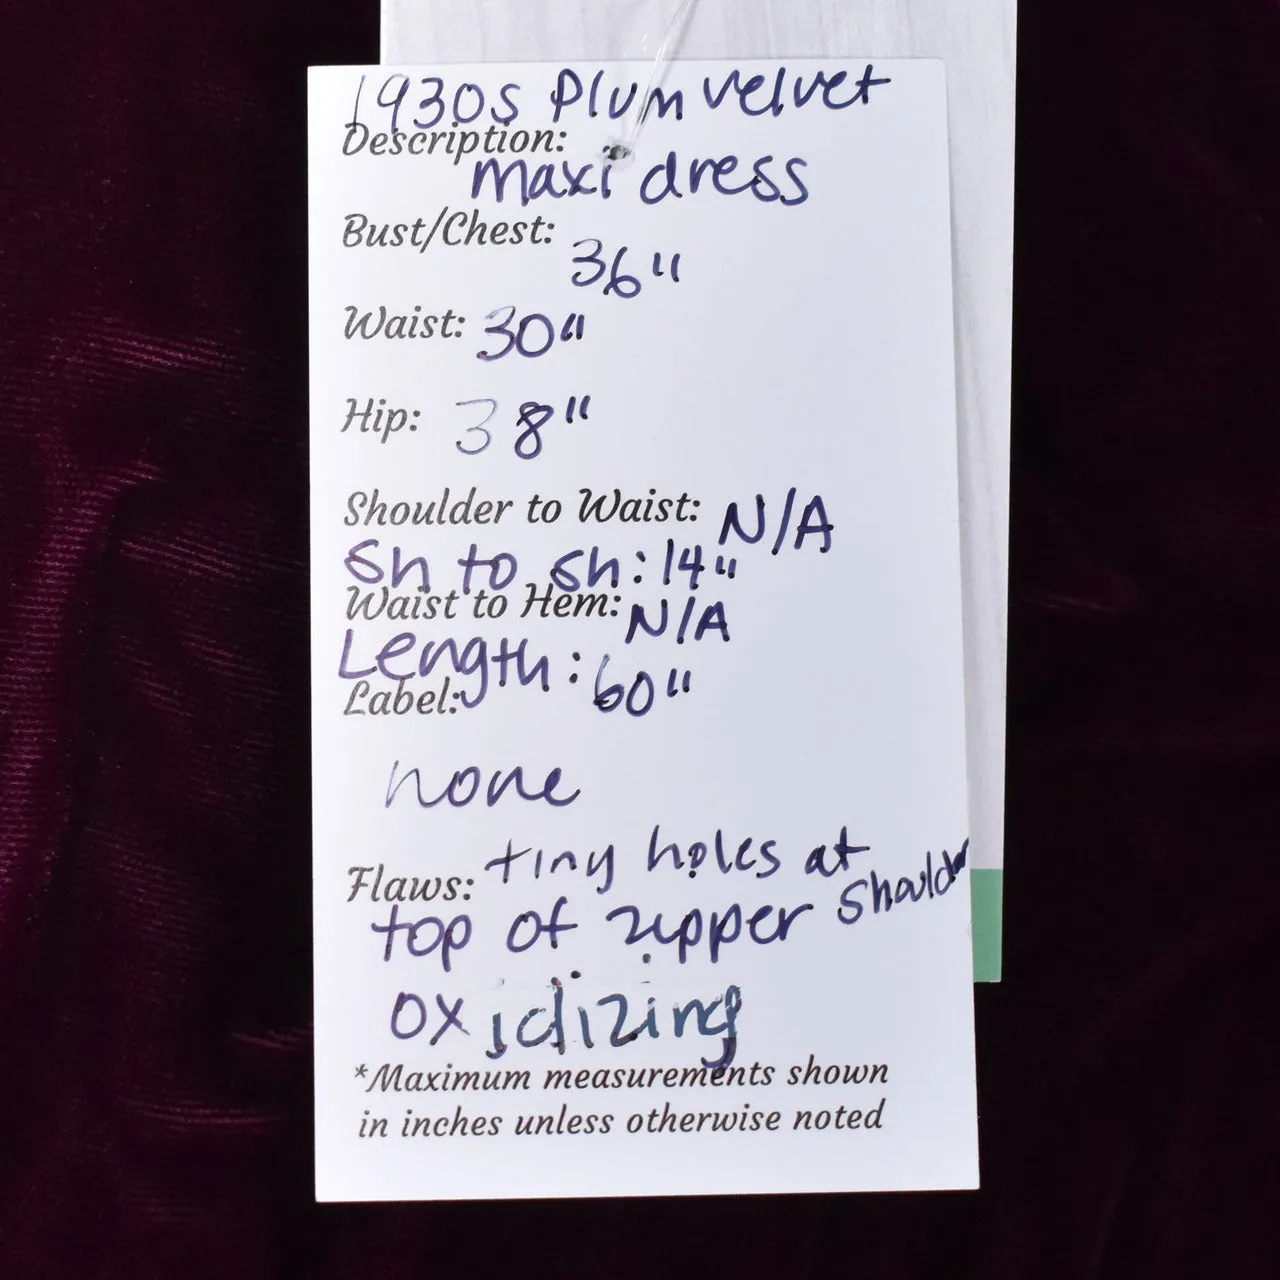 1930s Plum velvet
Description:
maxi dress
Bust/Chest:
36"
Waist: 30"
Hip: 38"
Shoulder to Waist: N/A
Sh to sh: 14"
Waist to Hem: N/A
Length: 60"
Label:
none
Flaws: tiny holes at
top of zipper shoulder
oxidizing
*Maximum measurements shown
in inches unless otherwise noted